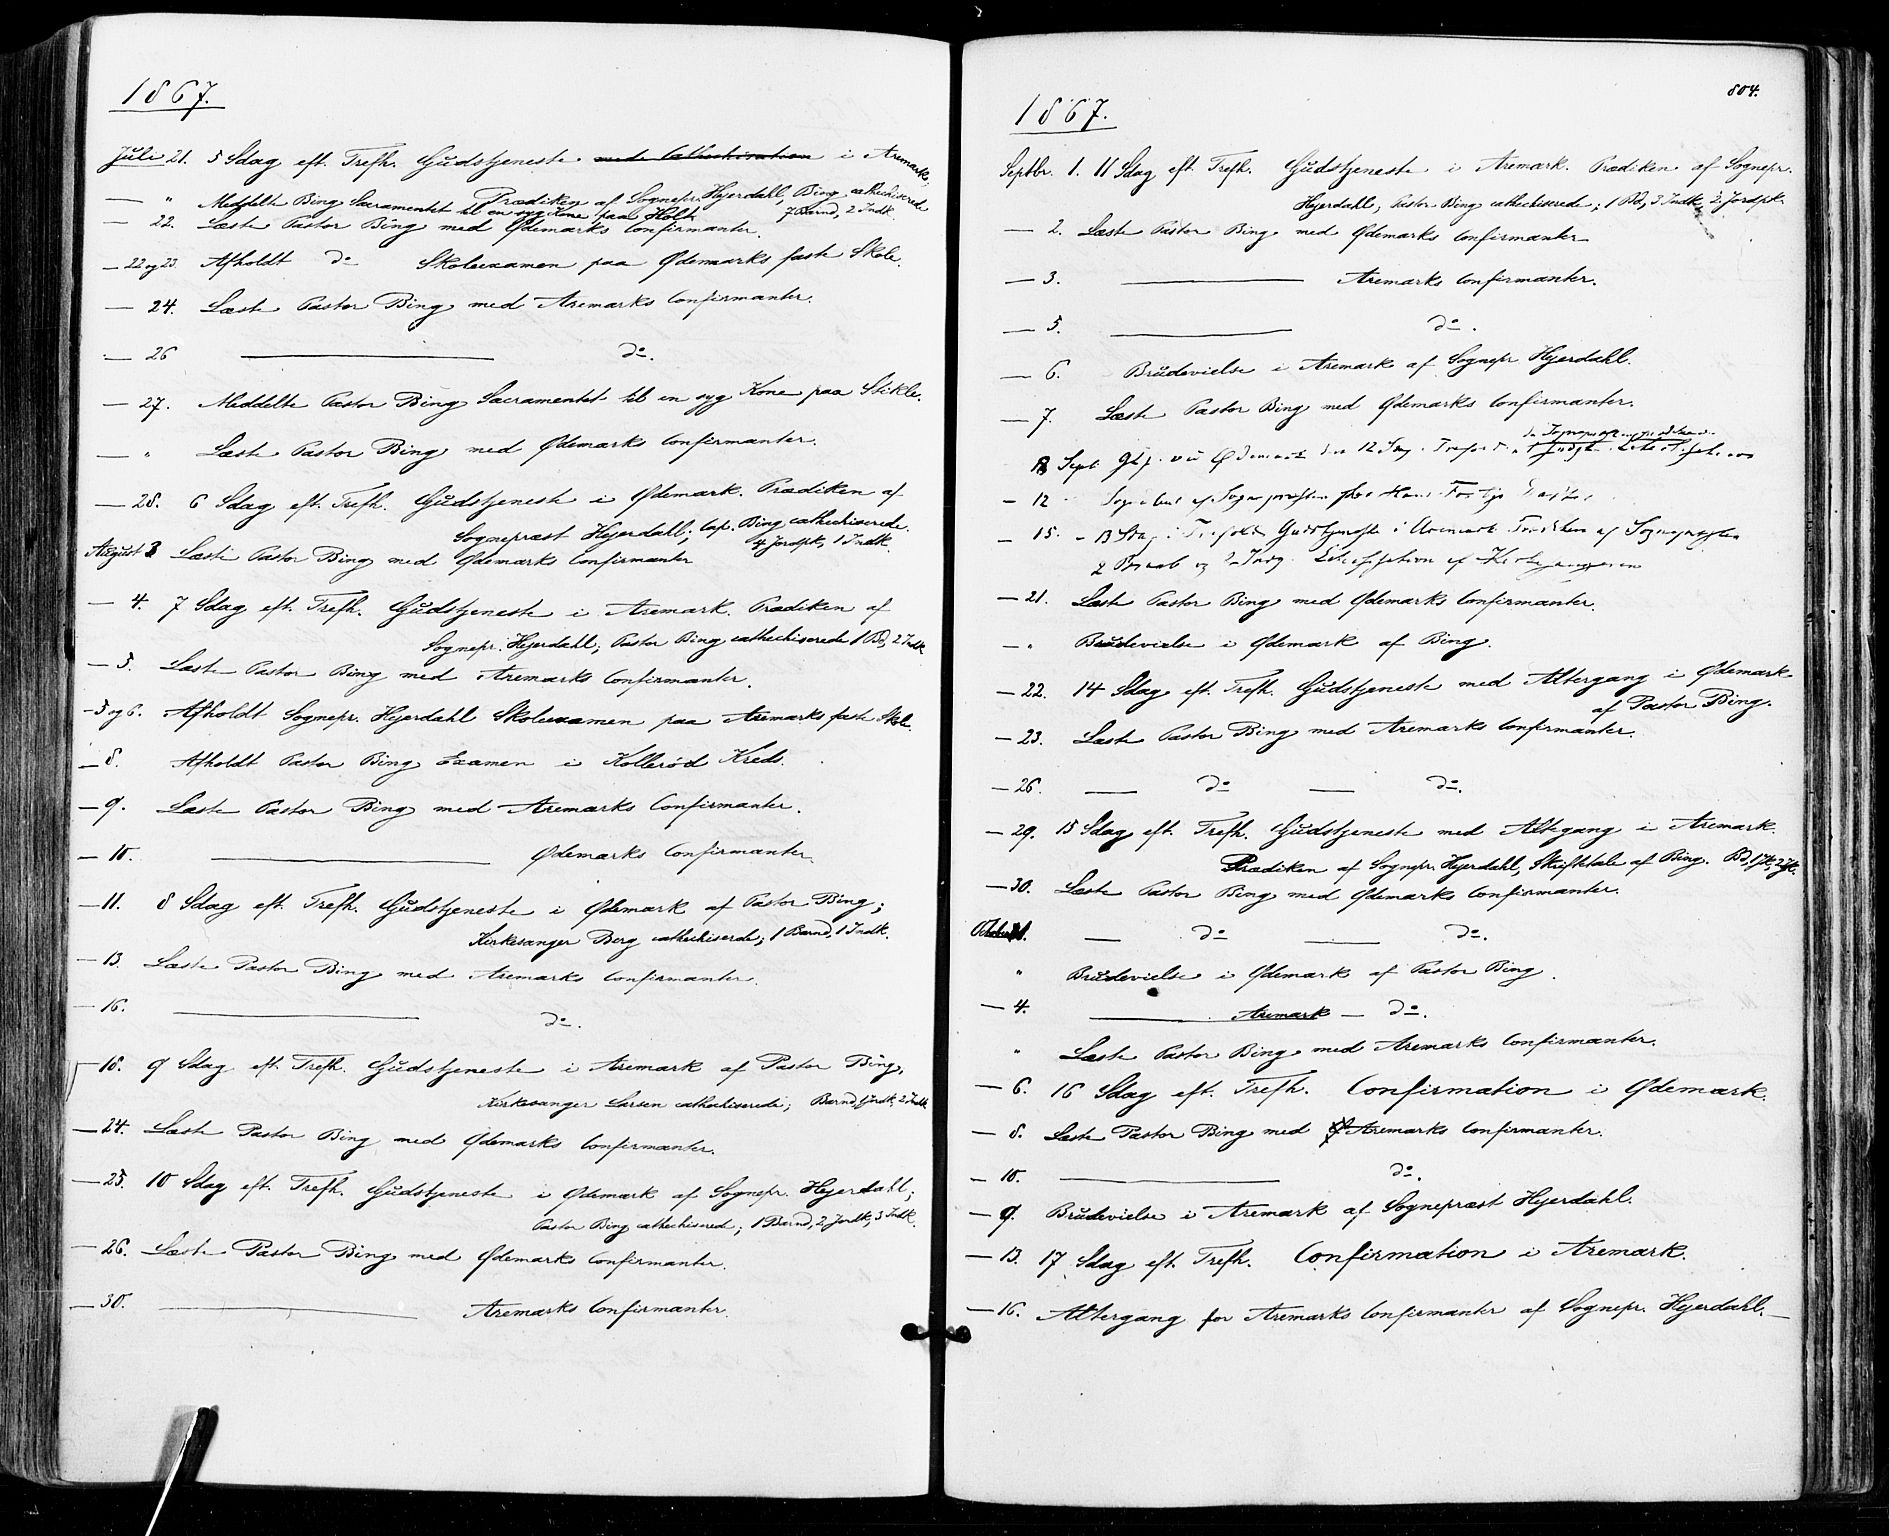 1867.
Juli 21. 5 Sdag eft. Trefh. Gudstjeneste med Cathechisation i Aremark;
Prædiken af Sognepr. Hjerdahl, Bing cathechiserede
7 Barnd, 2 Indk.
— " Meddelte Bing Sacramentet til en syg Kone paa Holt
— 22. Læste Pastor Bing med Ødemarks Confirmanter.
— 22 og 23. Afholdt do Skoleexamen paa Ødemarks faste Skole.
— 24. Læste Pastor Bing med Aremarks Confirmanter.
— 26 — do.
— 27. Meddelte Pastor Bing Sacramentet til en syg Kone paa Stikle.
— " Læste Pastor Bing med Ødemarks Confirmanter.
— 28. 6 Sdag eft. Trefh. Gudstjeneste i Ødemark. Prædiken af
Sognepræst Hjerdahl; Cap. Bing cathechiserede.
4 Jordpk, 1 Indk.
August 3 Læste Pastor Bing med Ødemarks Confirmanter
— 4. 7 Sdag eft. Trefh. Gudstjeneste i Aremark. Prædiken af
Sognepr. Hjerdahl; Pastor Bing cathechiserede 1 Bd, 2 Indk
— 5. Læste Pastor Bing med Aremarks Confirmanter.
— 5 og 6. Afholdt Sognepr. Hjerdahl Skoleexamen paa Aremarks faste Skole.
— 8. Afholdt Pastor Bing Examen i Kollerød Kreds.
— 9. Læste Pastor Bing med Aremarks Confirmanter.
— 10. — Ødemarks Confirmanter.
— 11. 8 Sdag eft. Trefh. Gudstjeneste i Ødemark af Pastor Bing;
Kirkesanger Berg cathechiserede; 1 Barnd, 1 Indk.
— 13. Læste Pastor Bing med Aremarks Confirmanter.
— 16. — do.
— 18. 9 Sdag eft. Trefh. Gudstjeneste i Aremark af Pastor Bing,
Kirkesanger Larsen cathechiserede; Barnd, Jordk, 2 Indk
— 24. Læste Pastor Bing med Ødemarks Confirmanter.
— 25. 10 Sdag eft. Trefh. Gudstjeneste i Ødemark af Sognepr. Hjerdahl;
Pastor Bing cathechisered; 1 Barnd, 2 Jordk, 3 Indk.
— 26. Læste Pastor Bing med Ødemarks Confirmanter.
— 30. — Aremarks Confirmanter.
804.
1867.
Septbr. 1. 11 Sdag eft. Trefh. Gudstjeneste i Aremark. Prædiken af Sognepr.
Hjerdahl; Pastor Bing cathechiserede; 1 Bd, 3 Indk, 2 Jordpk.
— 2. Læste Pastor Bing med Ødemarks Confirmanter
— 3. — Aremarks Confirmanter.
— 5. — do.
— 6. Brudevielse i Aremark af Sognepr Hjerdahl.
— 7. Læste Pastor Bing med Ødemarks Confirmanter.
8 Sept Ødemark 12 Sdag
— 12
— 15. — 13 Sdag Gudstjeneste i Aremark af Sognepræsten
2 af Kirkesangeren
— 21. Læste Pastor Bing med Ødemarks Confirmanter.
— " Brudevielse i Ødemark af Bing.
— 22. 14 Sdag eft. Trefh. Gudstjeneste med Altergang i Ødemark
af Pastor Bing.
— 23. Læste Pastor Bing med Aremarks Confirmanter.
— 26. — do — do.
— 29. 15 Sdag eft. Trefh. Gudstjeneste med Altergang i Aremark.
Prædiken af Sognepr. Hjerdahl, Skriftetale af Bing.
— 30. Læste Pastor Bing med Ødemarks Confirmanter.
October 1. — do — do.
" Brudevielse i Ødemark af Pastor Bing.
— 4. — Aremark — do.
" Læste Pastor Bing med Aremarks Confirmanter.
— 6. 16 Sdag eft. Trefh. Confirmation i Ødemark.
— 8. Læste Pastor Bing med Aremarks Confirmanter.
— 10. — do.
— 9. Brudevielse i Aremark af Sognepræst Hjerdahl.
— 13. 17 Sdag eft. Trefh. Confirmation i Aremark.
— 16. Altergang for Aremarks Confirmanter af Sognepr. Hjerdahl. —